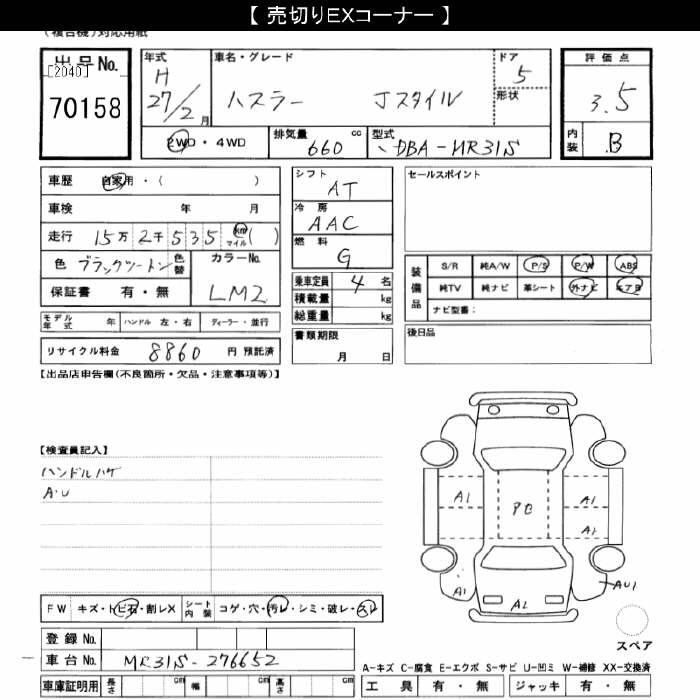 【 売切りEXコーナー 】
(複合機)対応用紙
出品No.
[2040]
70158
年式
H
27/2月
車名・グレード
ハスラー Jスタイル
ドア
5
形状
評価点
3.5
内装 B
2WD・4WD
排気量 660 cc
型式 DBA-MR31S
車歴 自家用・( )
車検 年 月
走行 15万2千535 km マイル ( )
色 ブラックツートン 色替
カラーNo.
LM2
保証書 有・無
モデル年式 年 ハンドル 左・右 ディーラー・並行
リサイクル料金 8860 円 預託済
シフト
AT
冷房
AAC
燃料
G
乗車定員 4 名
積載量 kg
総重量 kg
書類期限
月 日
セールスポイント
装備品
S/R 純A/W P/S P/W ABS
純TV 純ナビ 革シート 外ナビ エアB
ナビ型番:
後日品
【出品店申告欄(不良箇所・欠品・注意事項等)】
【検査員記入】
ハンドルハゲ
A・U
A1
A1
A1
A1
A2
AU1
スペア
FW キズ・トビ石・割レX シート内装 コゲ・穴・汚レ・シミ・破レ・スレ
登録No.
車台No. MR31S-276652
車庫証明用 長さ cm 幅 cm 高さ cm
A-キズ C-腐食 E-エクボ S-サビ U-凹ミ W-補修 XX-交換済
工具 有・無 ジャッキ 有・無